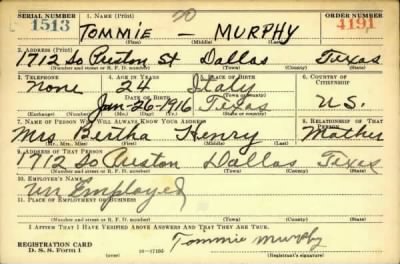 SERIAL NUMBER 1. NAME (Print) ORDER NUMBER
1513 TOMMIE — MURPHY 4191
(First) (Middle) (Last)
2. ADDRESS (Print)
1712 So Preston St Dallas Texas
(Number and street or R. F. D. number) (Town) (County) (State)
3. TELEPHONE 4. AGE IN YEARS 5. PLACE OF BIRTH 6. COUNTRY OF CITIZENSHIP
None 24 Italy
DATE OF BIRTH (Town or county)
Jan-26-1916 Texas U.S.
(Exchange) (Number) (Mo.) (Day) (Yr.) (State or country)
7. NAME OF PERSON WHO WILL ALWAYS KNOW YOUR ADDRESS 8. RELATIONSHIP OF THAT PERSON
Mrs Bertha Henry Mother
(Mr., Mrs., Miss) (First) (Middle) (Last)
9. ADDRESS OF THAT PERSON
1712 So Preston Dallas Texas
(Number and street or R. F. D. number) (Town) (County) (State)
10. EMPLOYER'S NAME
Un Employed
11. PLACE OF EMPLOYMENT OR BUSINESS
(Number and street or R. F. D. number) (Town) (County) (State)
I AFFIRM THAT I HAVE VERIFIED ABOVE ANSWERS AND THAT THEY ARE TRUE.
REGISTRATION CARD Tommie Murphy
D. S. S. Form 1 (Registrant's signature)